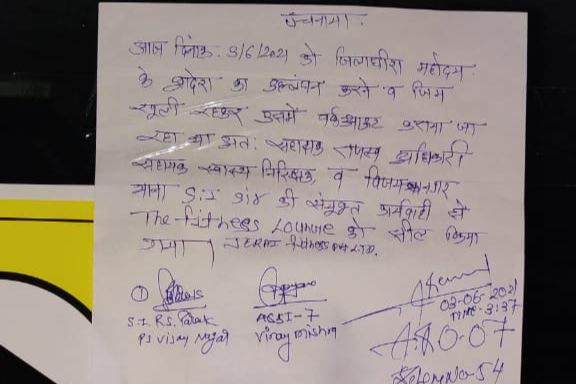 पंचनामा.
आज दिनांक. 3/6/2021 को जिलाधीश महोदय
के आदेश का उल्लंघन करने व जिम
खुली रखकर उसमें वर्कआऊट कराया जा
रहा था अतः सहायक राजस्व अधिकारी
सहायक स्वास्थ्य निरिक्षक व विजयनगर
थाना S.I डाक की संयुक्त कार्यवाही से
The Fitness Lounge को सील किया
गया।
①
S.I. R.S.
PS Vijay Nagar
ASSI-7
03-06-2021
TIME-3:37
A.R.O-07
Zone No-54